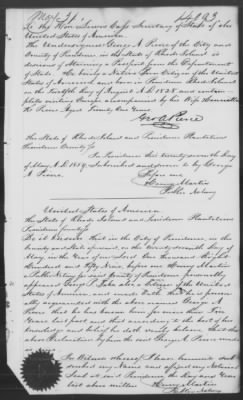 To the Honl. Lewis Cass Secretary of State of the
United States of America
The Undersigned George A Pierce of the City and
County of Providence in the State of Rhode Island
desirous of Obtaining a Passport from the Department
of State. He being a Native Born Citizen of the United
States of America was born in Providence Rhode Island
on the Twelfth day of August A.D. 1828 and
visiting Europe accompanied by his Wife
Geo A Pierce
The State of Rhode Island and Providence Plantations
Providence County Ss
In Providence this twenty seventh day of
May A.D. 1859 Subscribed and sworn to by George
A Pierce. Before me
Henry Martin
Public Notary
United States of America
The State of Rhode Island and Providence Plantations
Providence County Ss
Be it known that in the City of Providence in the
County and State aforesaid on the Twenty seventh day of
May in the Year of our Lord One thousand Eight
hundred and Fifty Nine before me Henry Martin
a Public Notary in said County of Providence personally
appeared George a Citizen of the United
States of America and made Oath that he is personally
acquainted with the above named George A
Pierce that he has known him for more than Five
Years last past and that according to the best of his
knowledge and belief he doth verily believe that the
above Declaration by him the said George A. Pierce made
In Witness whereof I have hereunto
subscribed my Name and affixed my Notarial
Seal at said Providence the Day and Year
last above written
Henry Martin
Public Notary